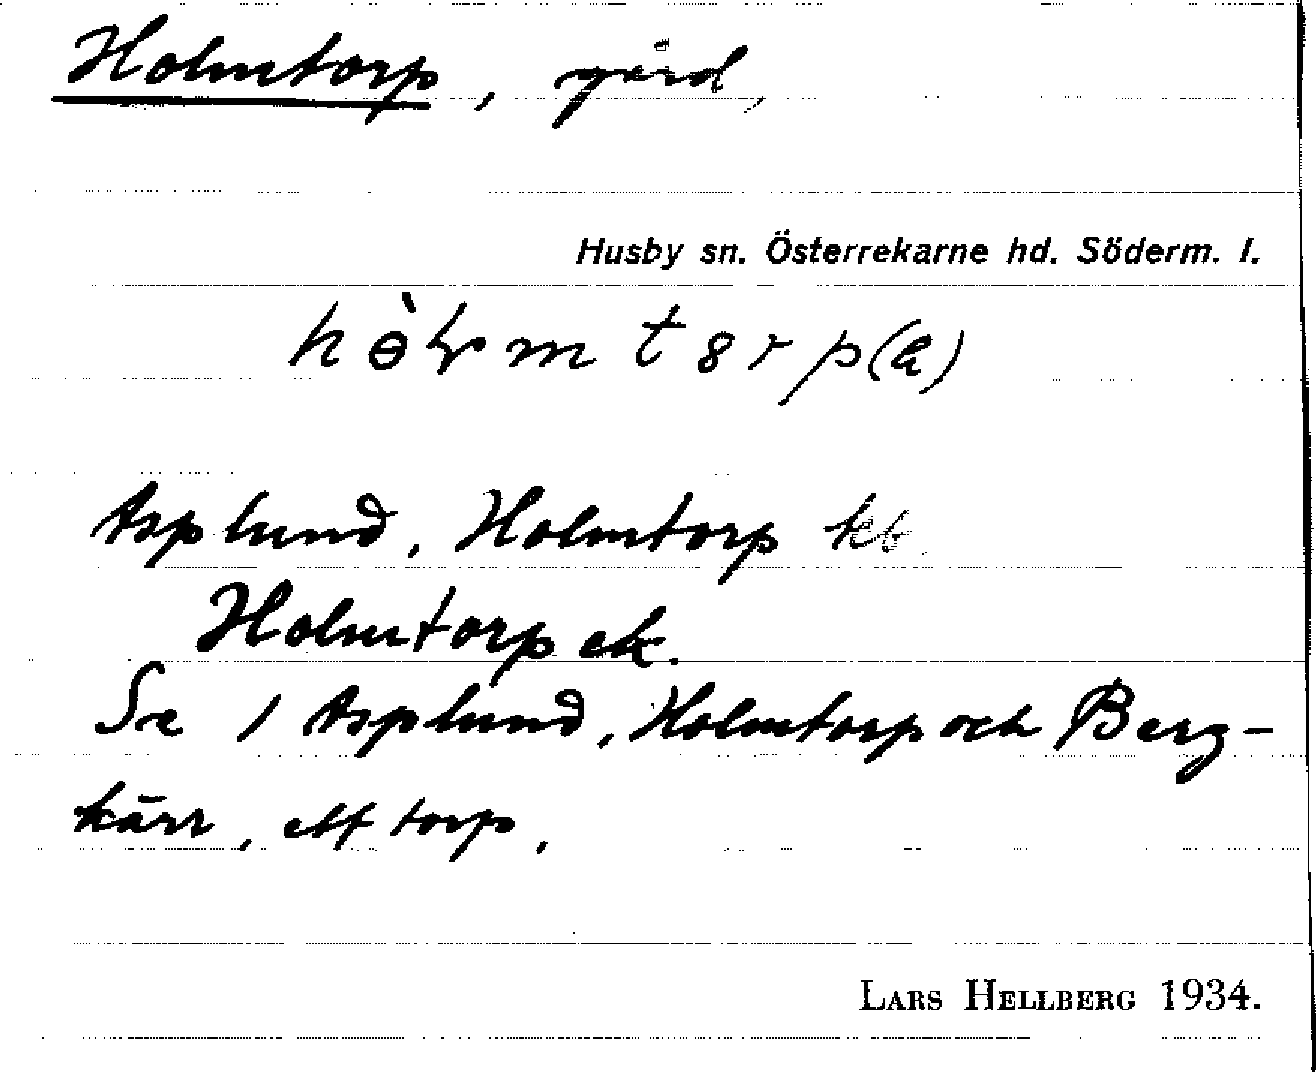 Holmtorp, gård,
Husby sn. Österrekarne hd. Söderm. l.
hɵ̀ɽmtɞrp(a)
Asplund, Holmtorp kb.
Holmtorp ek.
Se 1 Asplund, Holmtorp och Berg-
kärr, ett torp.
LARS HELLBERG 1934.